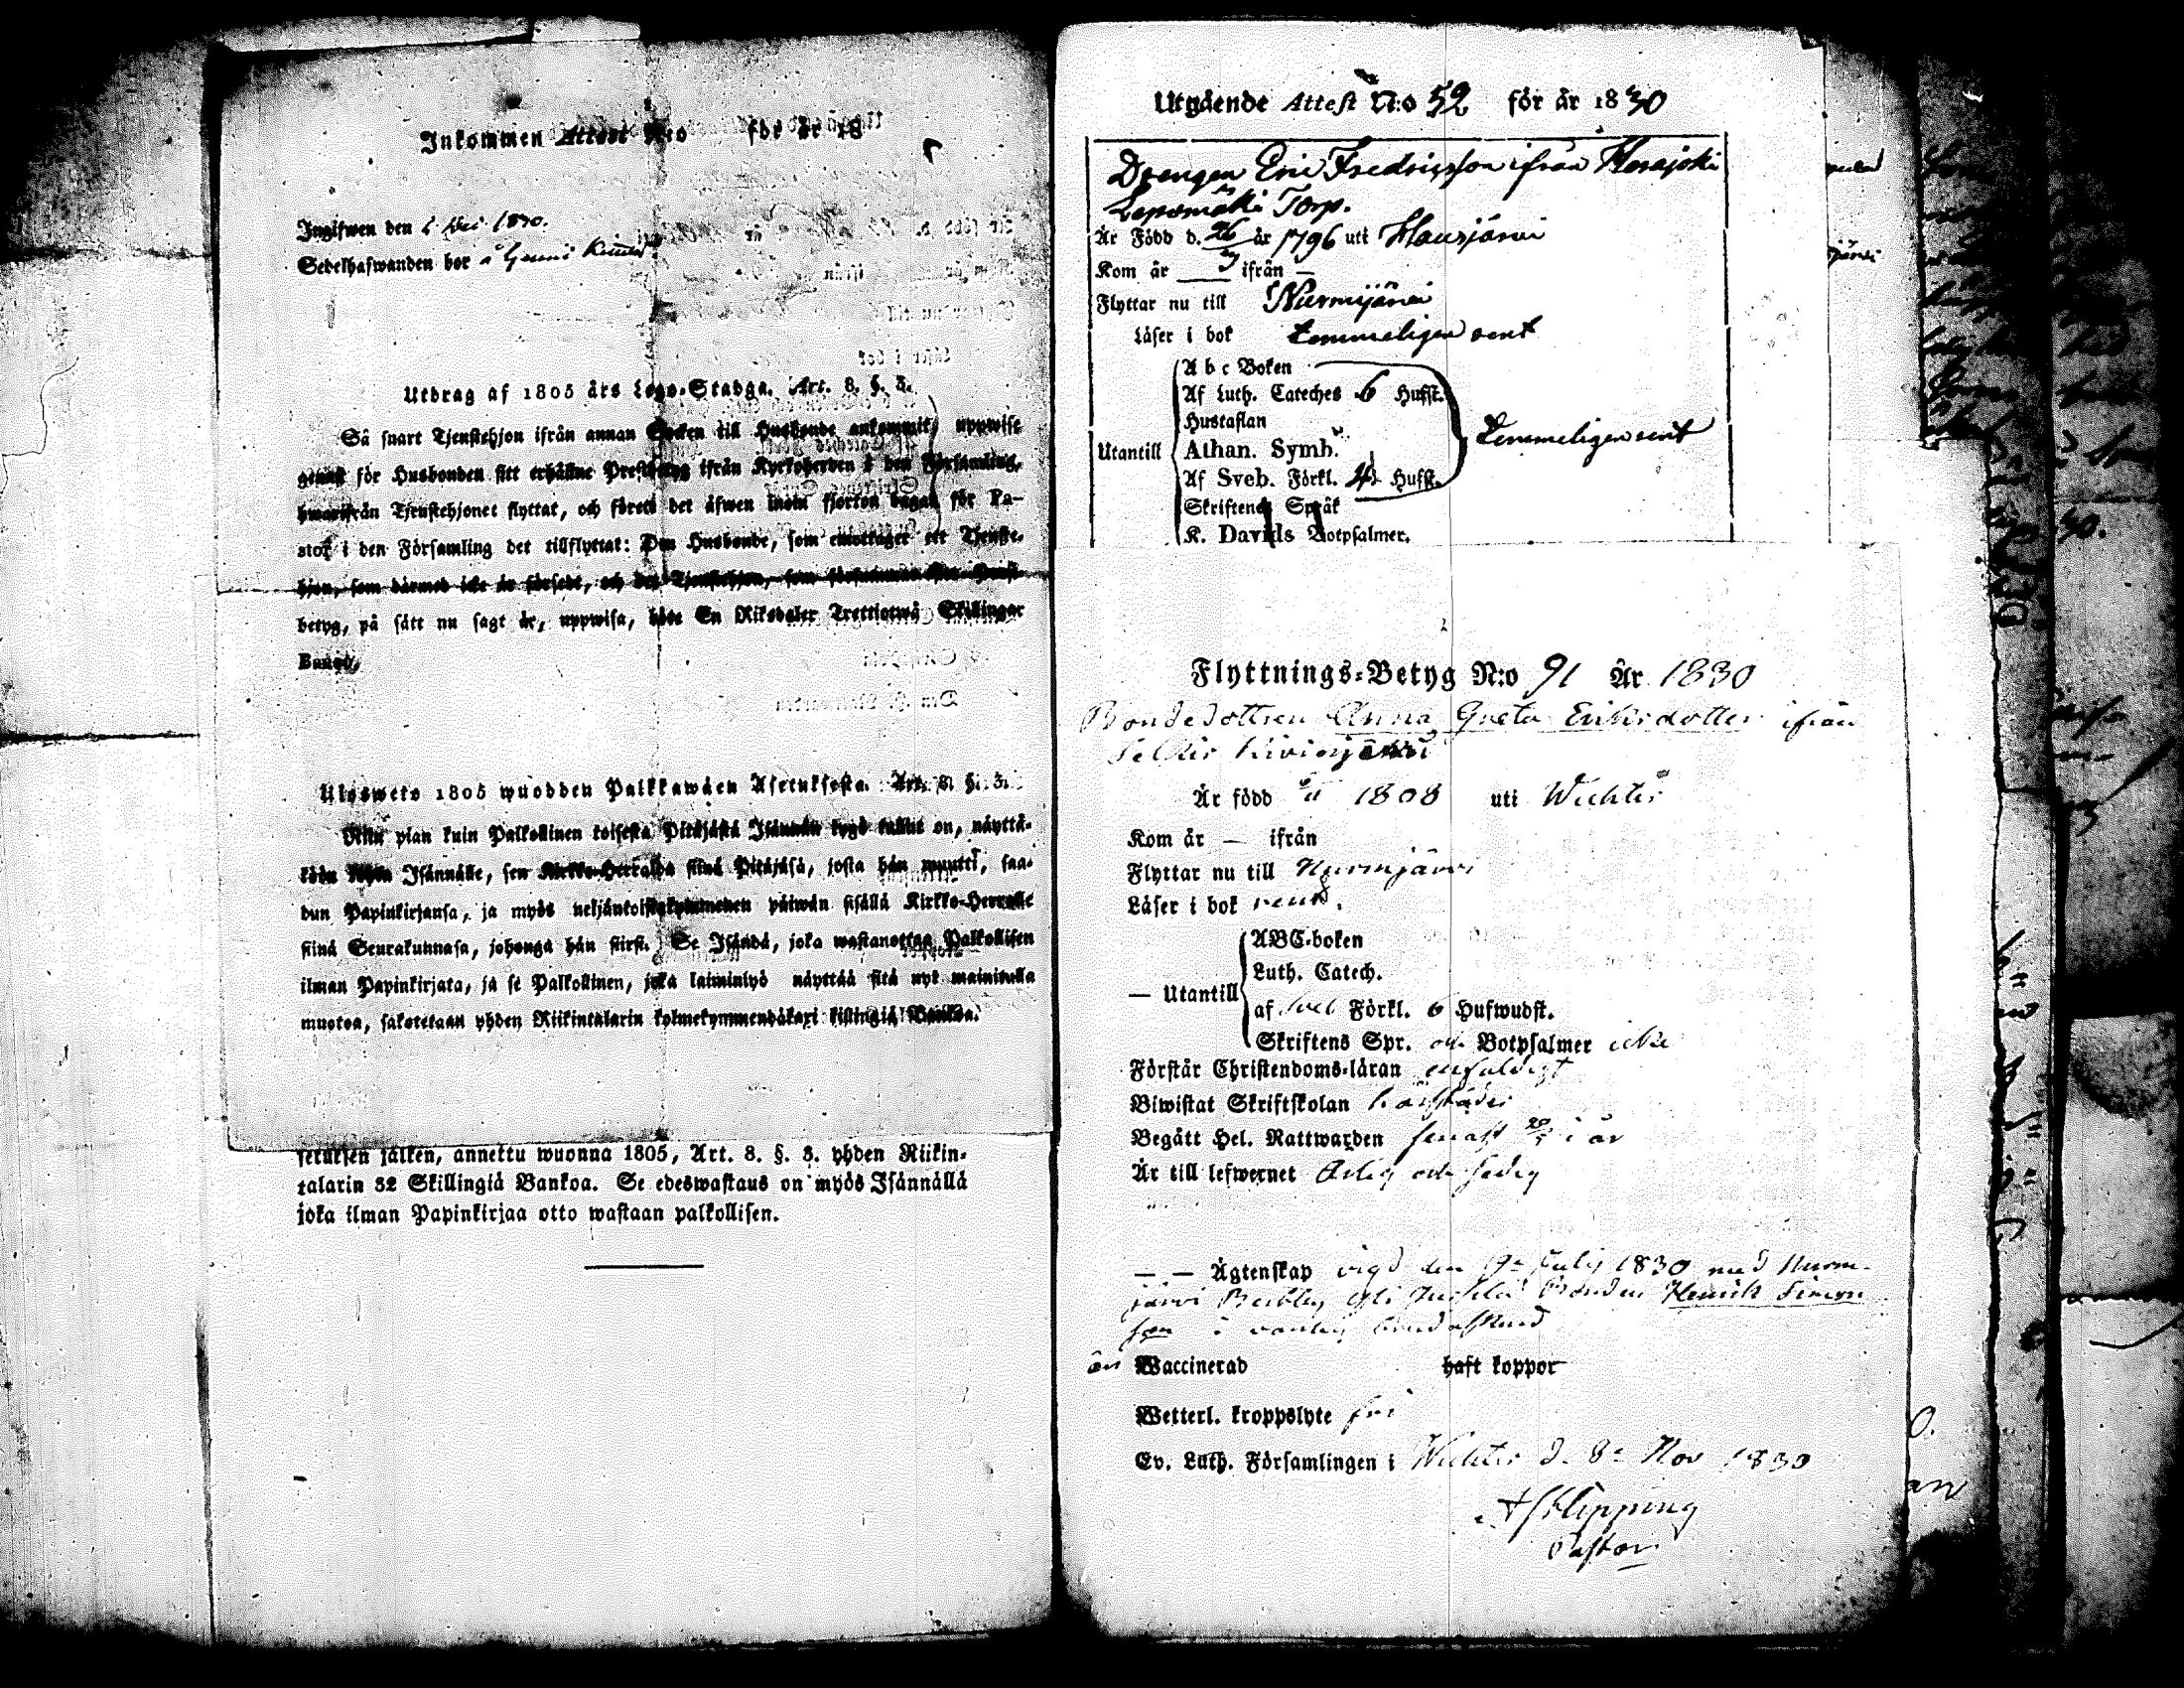 Inkommen Attest N:o för år 18
Ingifwen den 1830.
Sedelhafwanden bor å
Utdrag af 1805 års Lego-Stadga. Art. 8. §. 3.
Så snart Tjenstehjon ifrån annan Socken till Husbonde ankommit, uppwise
genast för Husbonden sitt erhållne Prestbetyg ifrån Kyrkoherden i den Församling,
hwarifrån Tjenstehjonet flyttat, och förete det äfwen inom fjorton dagar för Pa-
stor i den Församling det tillflyttat: Den Husbonde, som emottager ett Tjenste-
hjon, som därmed icke är försedt, och det Tjenstehjon, som försummar sitt Prest-
betyg, på sätt nu sagt är, uppwisa, böte En Riksdaler Trettiotwå Skillingar
Banco.
Ulosweto 1805 wuodden Palkkawäen Asetuksesta. Art. 8. §. 3.
Niin pian kuin Palkollinen toisesta Pitäjästä Isännän tygö tullut on, näyttä-
köön Isännälle, sen Kirkko-Herralda siinä Pitäjäsä, josta hän muutti, saa-
dun Papinkirjansa, ja myös neljäntoistakymmenen päiwän sisällä Kirkko-Herralle
siinä Seurakunnasa, johonga hän siirst. Se Isändä, joka wastanottaa Palkollisen
ilman Papinkirjata, ja se Palkollinen, joka laiminlyö näyttää sitä nyt mainitulla
muotoa, sakotetaan yhden Riikintalarin kolmekymmendäkaxi killingiä Bankoa.
setuksen jälken, annettu wuonna 1805, Art. 8. §. 3. yhden Riikin-
talarin 32 Skillingiä Bankoa. Se edeswastaus on myös Isännällä
joka ilman Papinkirjaa otto wastaan palkollisen.
Utgående Attest N:o 52 för år 1830
Drengen Eric Fredricsson ifrån Herajoki
Lepomäki Torp.
Är Född d. 26 år 1796 uti Hausjärvi
Kom år — ifrån —
Flyttar nu till Nurmijärvi
Läser i bok temmeligen rent
A b c Boken
Af Luth. Cateches 6 Hufst.
Hustaflan
Utantill Athan. Symb. temmeligen rent
Af Sveb. Förkl. 4 Hufst.
Skriftenes Språk
K. Davids Botpsalmer.
Flyttnings-Betyg N:o 91 År 1830
Bondedottren Anna Greta Eriksdotter ifrån
Selkis
Är född år 1808 uti Wichtis
Kom år — ifrån
Flyttar nu till Nurmjärvi
Läser i bok rent.
ABC-boken
Luth. Catech.
— Utantill
af Sveb Förkl. 6 Hufwudst.
Skriftens Spr. och Botpsalmer icke
Förstår Christendoms-läran enfaldigt
Biwistat Skriftskolan härstädes
Begått Hel. Nattwarden senast i år
Är till lefwernet Ärlig och sedig
— — Ägtenskap vigd den July 1830 med Nurm-
järvi Bonden Henrik Simon
son i
är Waccinerad haft koppor
Wetterl. kroppslyte fri
Ev. Luth. Församlingen i Wichtis d. 8 Nov 1830
Pastor.